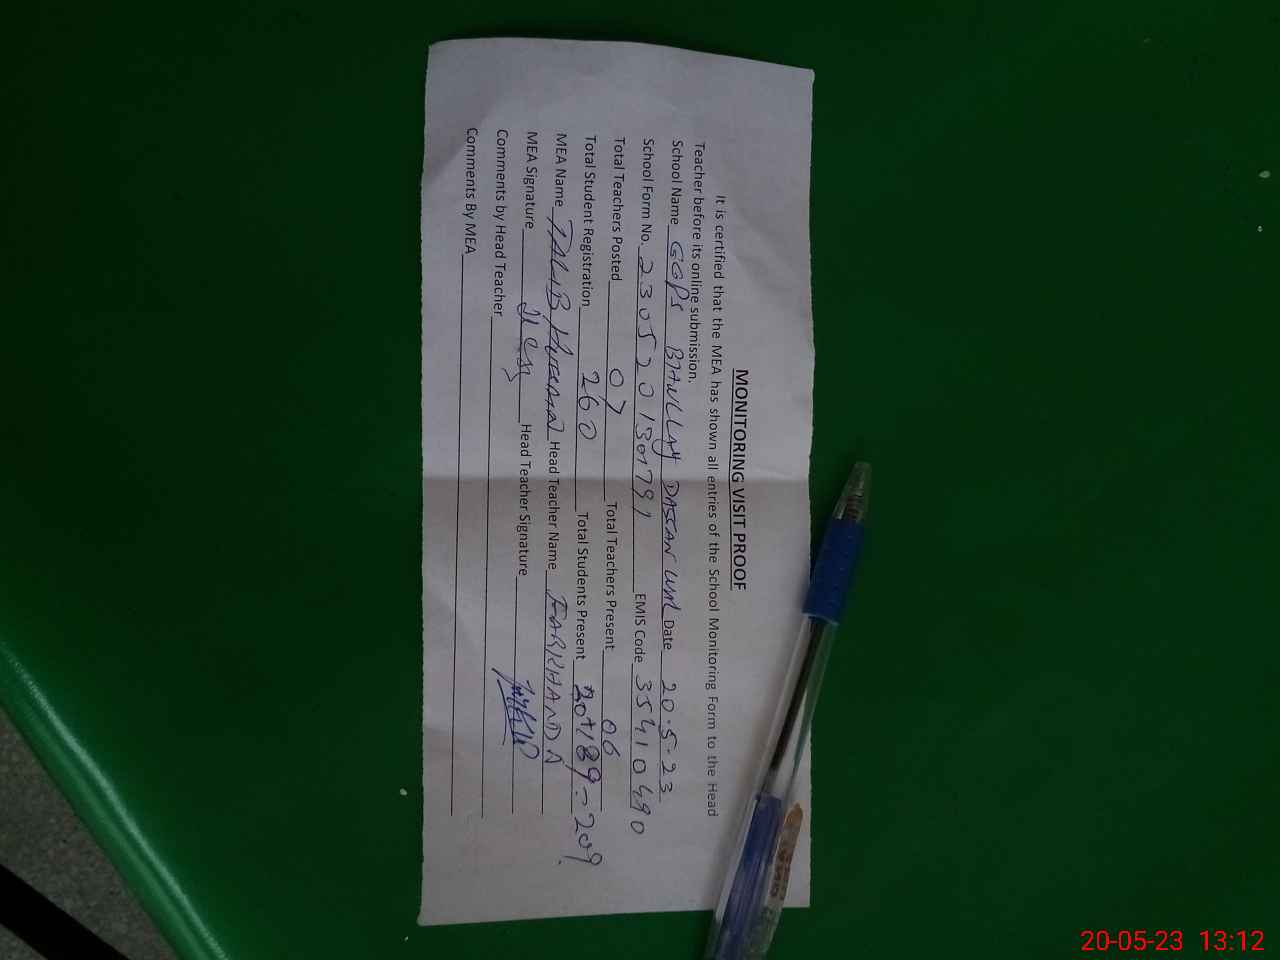 MONITORING VISIT PROOF
It is certified that the MEA has shown all entries of the School Monitoring Form to the Head
Teacher before its online submission.
School Name GGPS BHULLAY DASSAN WM Date 20.5.23
School Form No. 230520130179 EMIS Code 35410490
Total Teachers Posted 07 Total Teachers Present 06
Total Student Registration 260 Total Students Present 20+189=209
MEA Name TALIB HUSSAIN Head Teacher Name FARKHANDA
MEA Signature Head Teacher Signature
Comments by Head Teacher
Comments By MEA
20-05-23 13:12